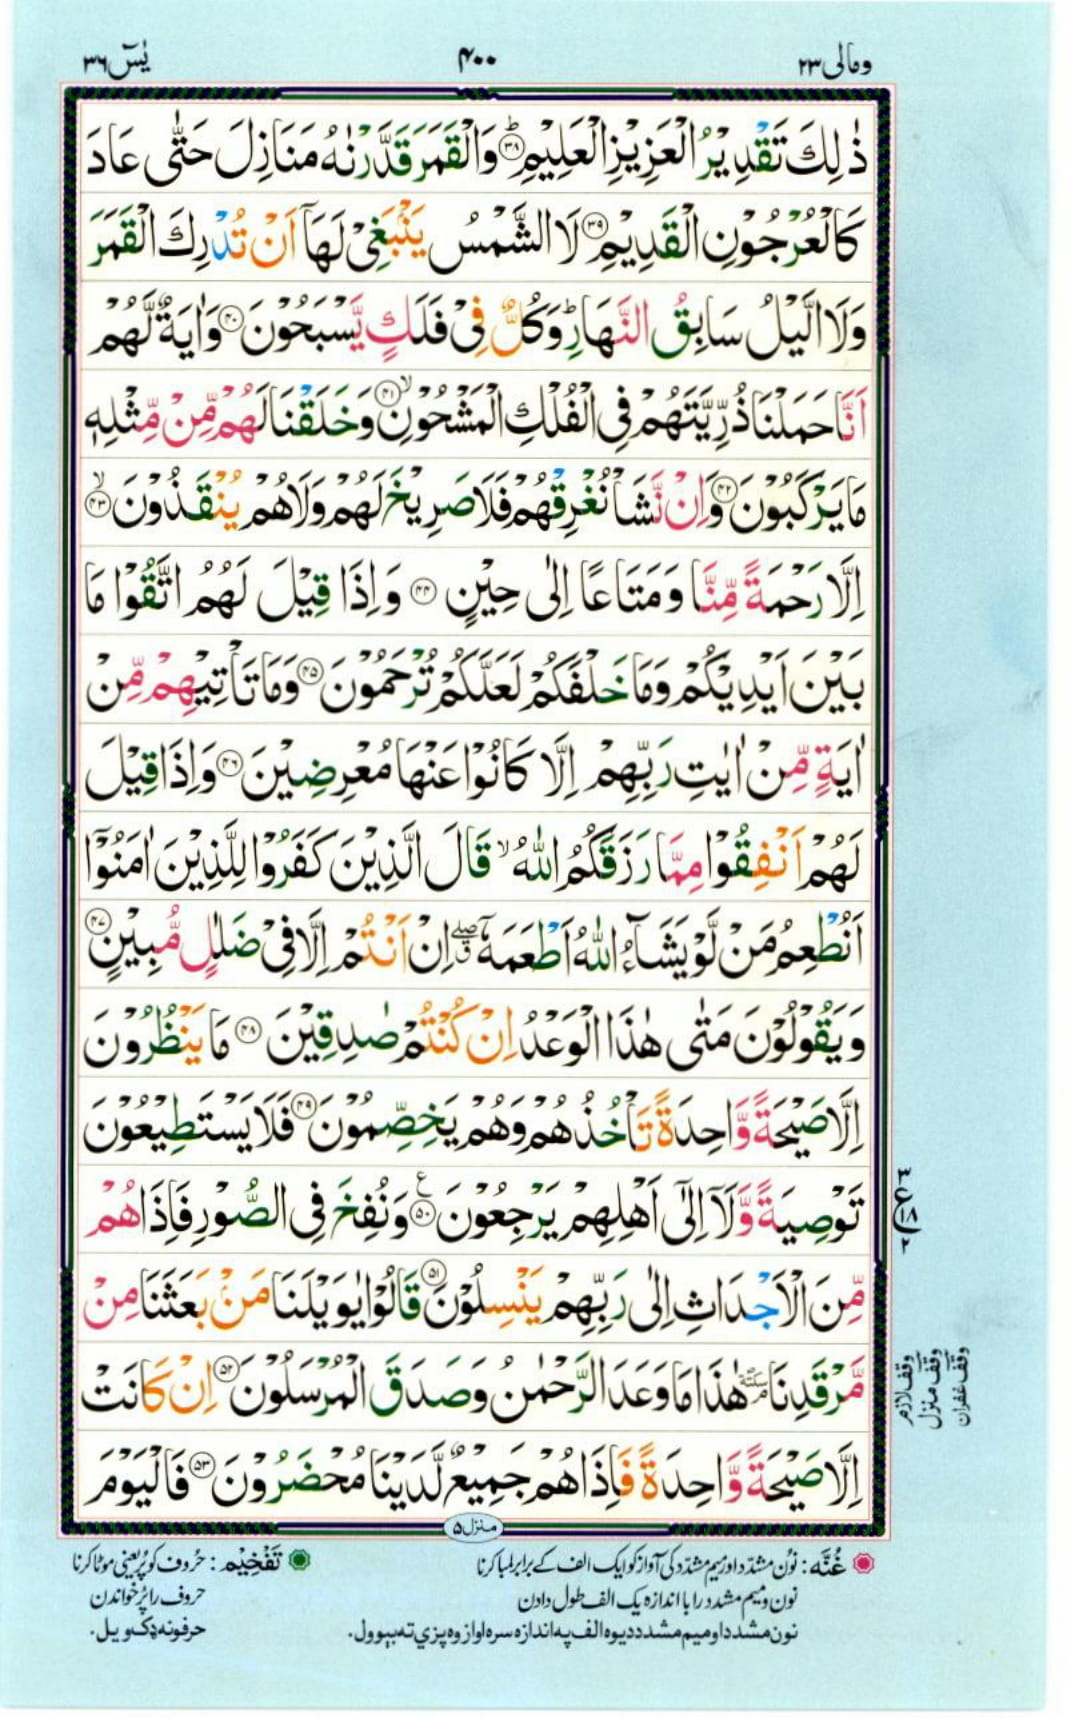 ومالی ۲۳
۴۰۰
یٰسٓ ۳۶
ذٰلِكَ تَقْدِیْرُ الْعَزِیْزِ الْعَلِیْمِ ؕ﴿۳۸﴾ وَالْقَمَرَ قَدَّرْنٰهُ مَنَازِلَ حَتّٰی عَادَ
كَالْعُرْجُوْنِ الْقَدِیْمِ ﴿۳۹﴾ لَا الشَّمْسُ یَنْۢبَغِیْ لَهَاۤ اَنْ تُدْرِكَ الْقَمَرَ
وَلَا الَّیْلُ سَابِقُ النَّهَارِ ؕ وَكُلٌّ فِیْ فَلَكٍ یَّسْبَحُوْنَ ﴿۴۰﴾ وَاٰیَةٌ لَّهُمْ
اَنَّا حَمَلْنَا ذُرِّیَّتَهُمْ فِی الْفُلْكِ الْمَشْحُوْنِ ۙ﴿۴۱﴾ وَخَلَقْنَا لَهُمْ مِّنْ مِّثْلِهٖ
مَا یَرْكَبُوْنَ ﴿۴۲﴾ وَاِنْ نَّشَاْ نُغْرِقْهُمْ فَلَا صَرِیْخَ لَهُمْ وَلَا هُمْ یُنْقَذُوْنَ ۙ﴿۴۳﴾
اِلَّا رَحْمَةً مِّنَّا وَمَتَاعًا اِلٰی حِیْنٍ ﴿۴۴﴾ وَاِذَا قِیْلَ لَهُمُ اتَّقُوْا مَا
بَیْنَ اَیْدِیْكُمْ وَمَا خَلْفَكُمْ لَعَلَّكُمْ تُرْحَمُوْنَ ﴿۴۵﴾ وَمَا تَاْتِیْهِمْ مِّنْ
اٰیَةٍ مِّنْ اٰیٰتِ رَبِّهِمْ اِلَّا كَانُوْا عَنْهَا مُعْرِضِیْنَ ﴿۴۶﴾ وَاِذَا قِیْلَ
لَهُمْ اَنْفِقُوْا مِمَّا رَزَقَكُمُ اللّٰهُ ۙ قَالَ الَّذِیْنَ كَفَرُوْا لِلَّذِیْنَ اٰمَنُوْۤا
اَنُطْعِمُ مَنْ لَّوْ یَشَآءُ اللّٰهُ اَطْعَمَهٗۤ ۖ اِنْ اَنْتُمْ اِلَّا فِیْ ضَلٰلٍ مُّبِیْنٍ ﴿۴۷﴾
وَیَقُوْلُوْنَ مَتٰی هٰذَا الْوَعْدُ اِنْ كُنْتُمْ صٰدِقِیْنَ ﴿۴۸﴾ مَا یَنْظُرُوْنَ
اِلَّا صَیْحَةً وَّاحِدَةً تَاْخُذُهُمْ وَهُمْ یَخِصِّمُوْنَ ﴿۴۹﴾ فَلَا یَسْتَطِیْعُوْنَ
تَوْصِیَةً وَّلَاۤ اِلٰۤی اَهْلِهِمْ یَرْجِعُوْنَ ﴿۵۰﴾ ع وَنُفِخَ فِی الصُّوْرِ فَاِذَا هُمْ
مِّنَ الْاَجْدَاثِ اِلٰی رَبِّهِمْ یَنْسِلُوْنَ ﴿۵۱﴾ قَالُوْا یٰوَیْلَنَا مَنْۢ بَعَثَنَا مِنْ
مَّرْقَدِنَا سكتة هٰذَا مَا وَعَدَ الرَّحْمٰنُ وَصَدَقَ الْمُرْسَلُوْنَ ﴿۵۲﴾ اِنْ كَانَتْ
اِلَّا صَیْحَةً وَّاحِدَةً فَاِذَا هُمْ جَمِیْعٌ لَّدَیْنَا مُحْضَرُوْنَ ﴿۵۳﴾ فَالْیَوْمَ
۳
ع
۱۸
۲
وقف لازم
وقف منزل
وقف غفران
منزل ۵
غُنَّه : نوُن مشدّد اور میم مشدّد کی آواز کو ایک الف کے برابر لمبا کرنا
نون و میم مشدد را با اندازه یک الف طول دادن
نون مشدد او میم مشدد دیوه الف په اندازه سره اواز وه پزې ته بېوول.
تَفْخِیْم : حرُوف کو پُر یعنی موٹا کرنا
حروف را پُر خواندن
حرفونه ډک ویل.